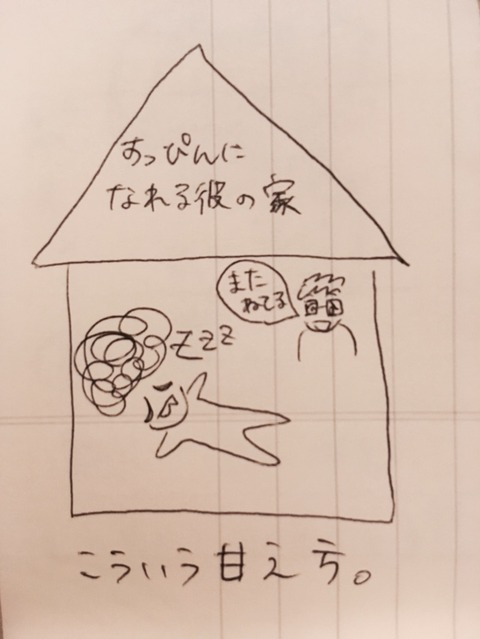 すっぴんに
なれる彼の家
また
ねてる
ZZZ
こういう甘え方。